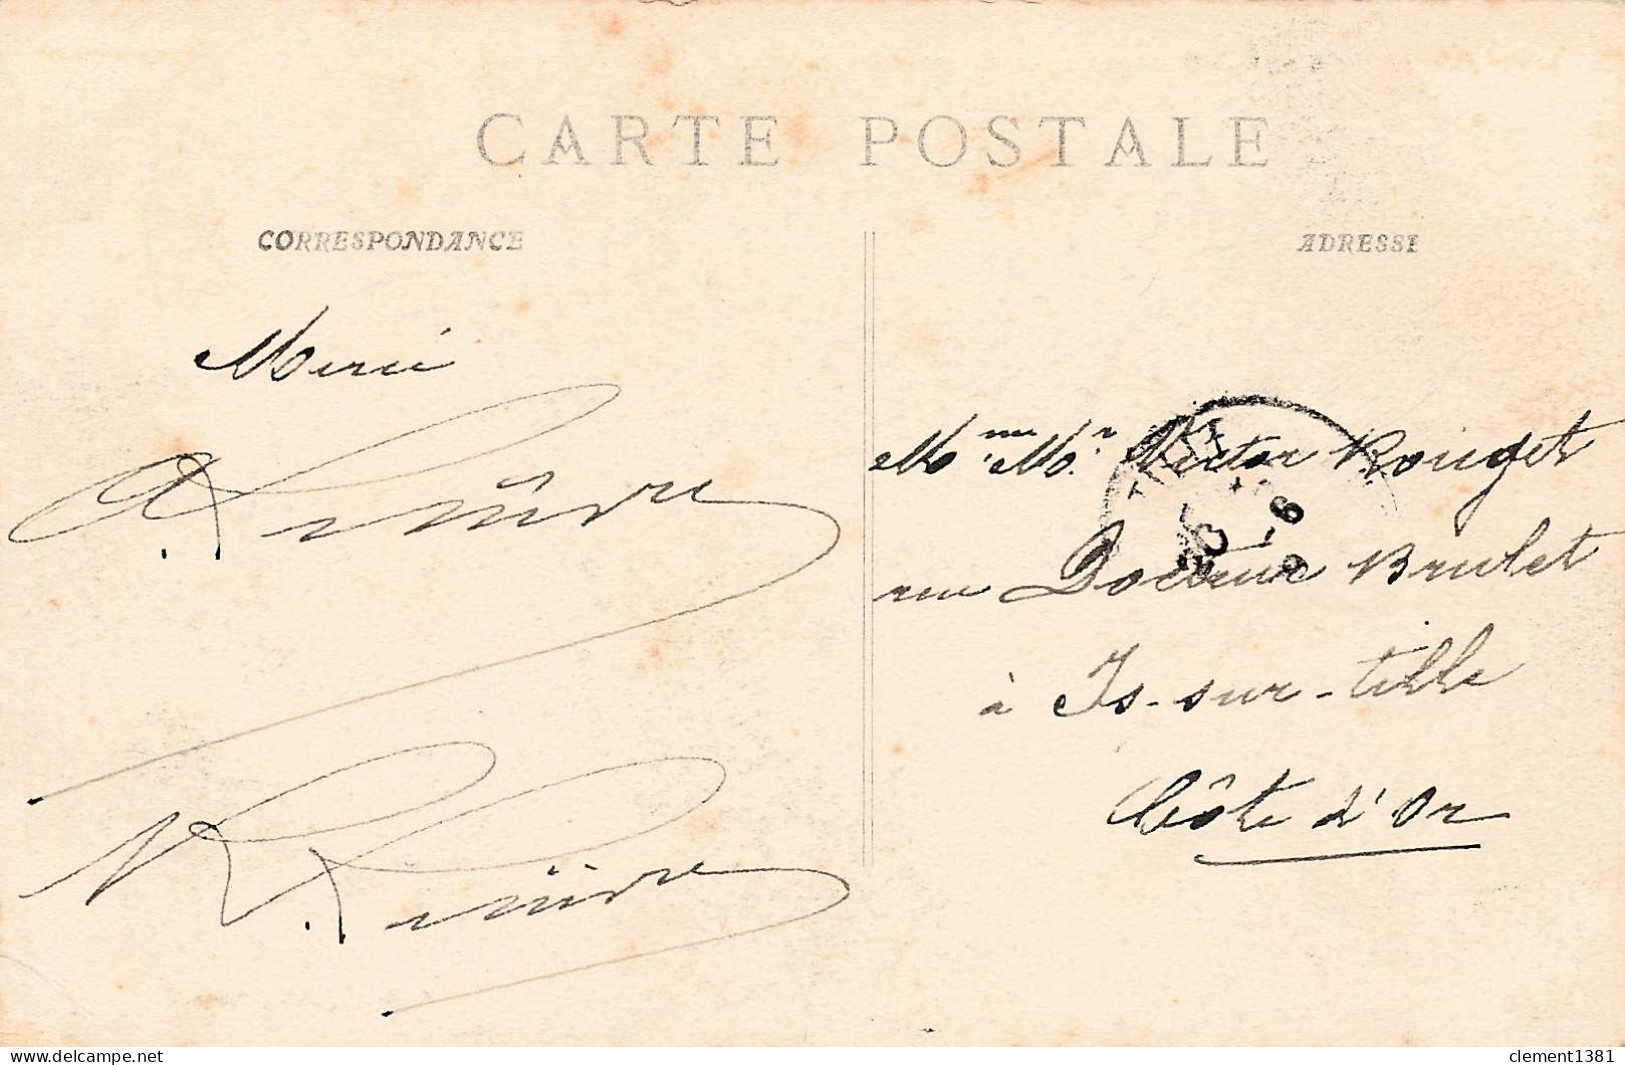 CARTE POSTALE
CORRESPONDANCE
ADRESSE
Merci
A. Rivière
N. Rivière
Mme Mr. Victor Rouget
rue Docteur Brulet
à Is-sur-tille
Côte d'Or
delcampe.net
clement1381